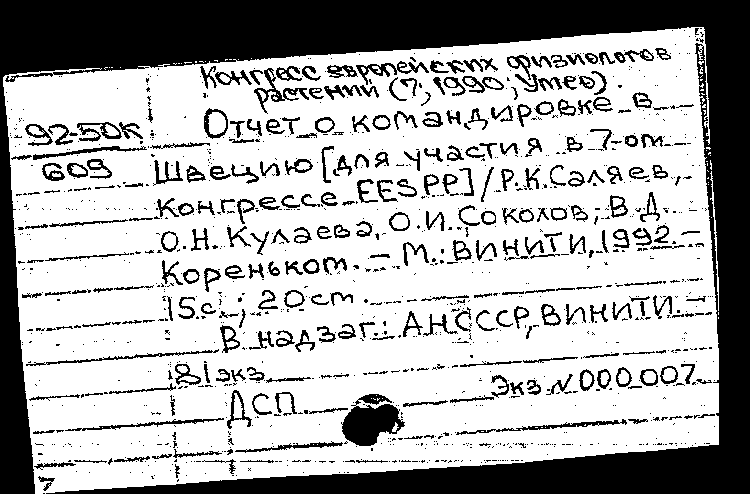 Конгресс европейских физиологов
растений (7; 1990; Умео).
92-50К Отчет о командировке в
609 Швецию [для участия в 7-ом
конгрессе FESPP] / Р.К.Саляев,
О.Н. Кулаева, О.И. Соколов; В.Д.
Кореньком. – М.: ВИНИТИ, 1992. –
15с.; 20см.
В надзаг.: АН СССР, ВИНИТИ. –
81экз
ДСП. Экз № 000007.
7